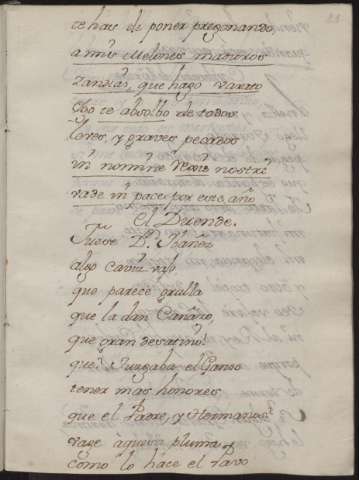 te has de poner pregonando
a mis Melones maduros
zandias, que hago varato
Ego te absolbo de todos
leves, y graves pecados
in nomine Regis nostri
vade in pace por este año
El Duende.
D.n Ibañez
algo
que parece grulla
que la dan Canaro,
que gran desatino!
que Juzgaba el Ganso
tener mas honores
que el Padre, y Hermanos?
vage aquesa pluma,
como lo hace el Pavo